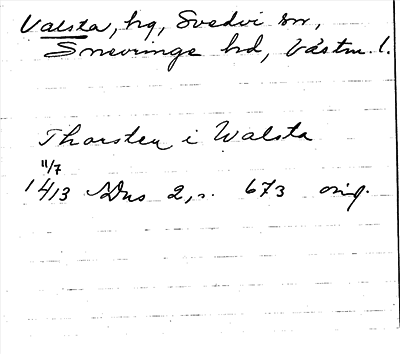 Valsta, hg, Svedvi sn,
Snevringe hd, Västm. l.
Thorsten i Walsta
11/7
1413 SDns 2, s. 673 orig.